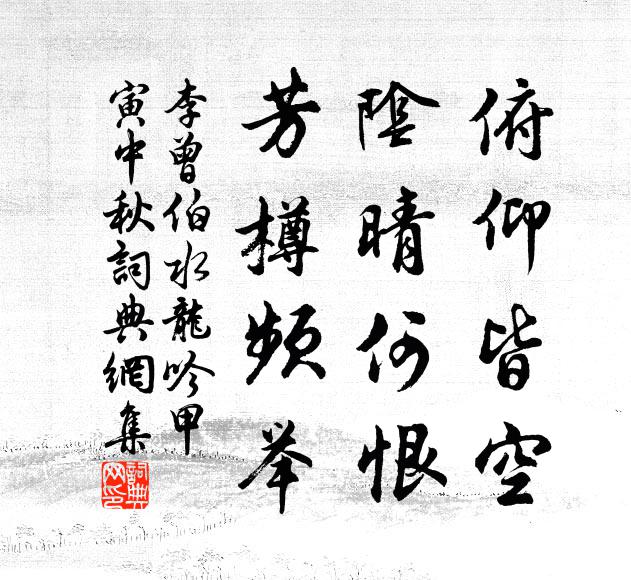 俯仰皆空
陰晴何恨
芳樽頻举
李曾伯水龍吟甲
寅中秋詞典網集
詞典网印